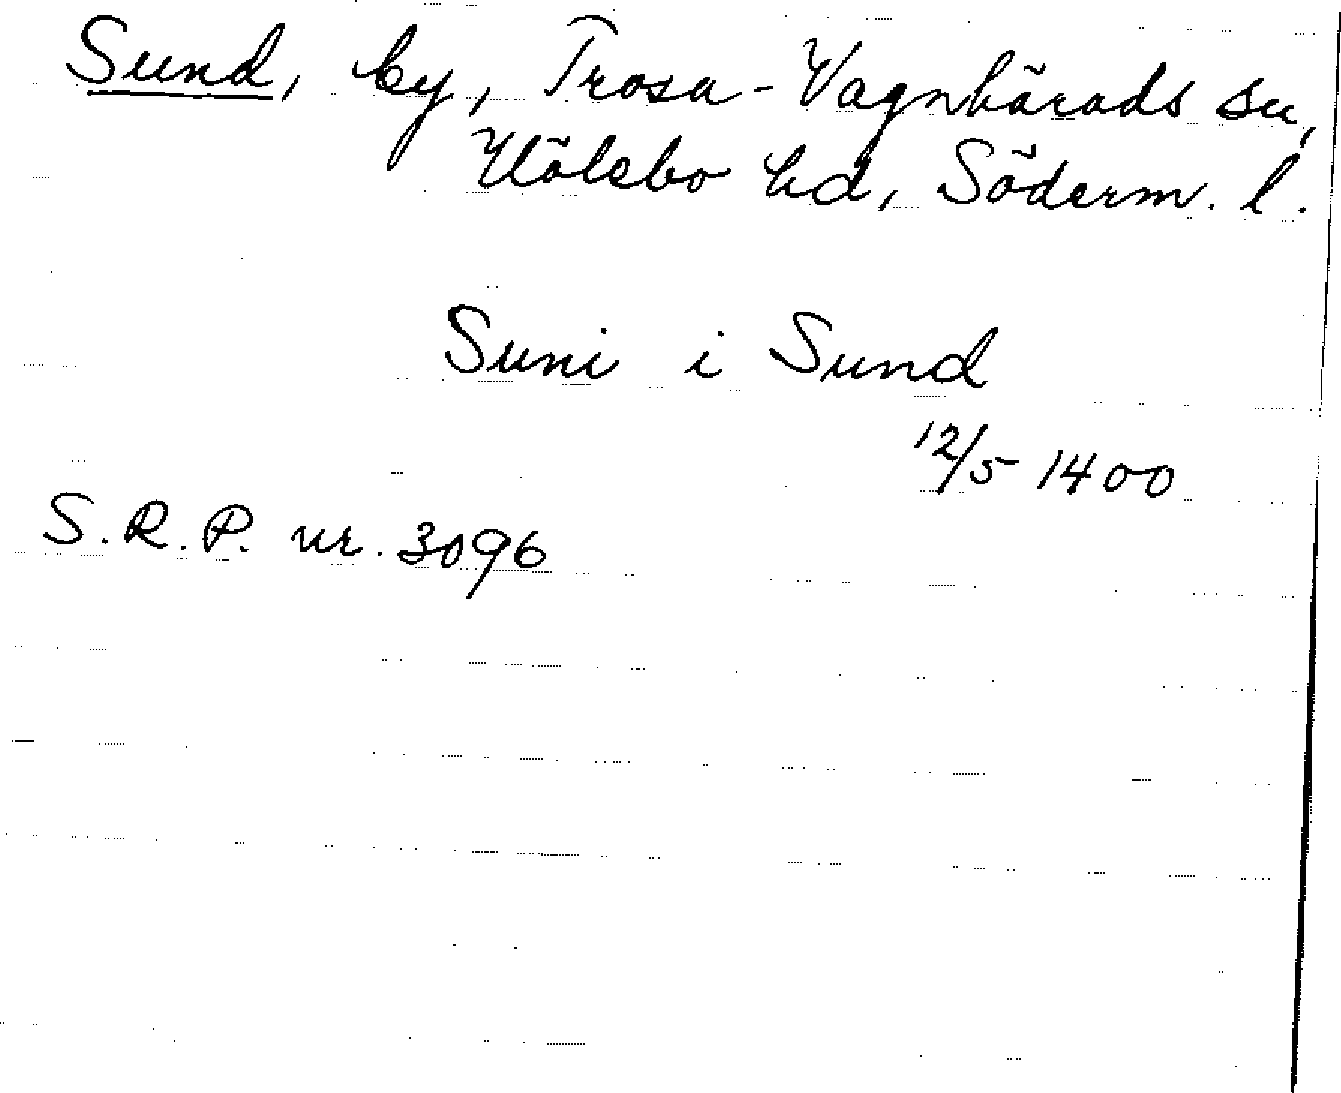 Sund, by, Trosa-Vagnhärads sn,
Hölebo hd, Söderm. l.
Suni i Sund
12/5 1400
S.R.P. nr. 3096